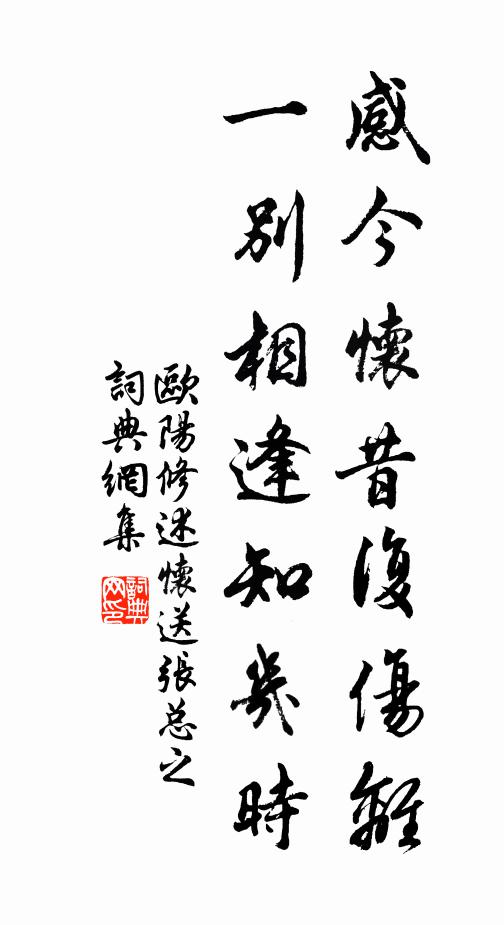 感今懷昔復傷離
一別相逢知幾時
歐陽修述懷送張總之
詞典網集
詞典網印